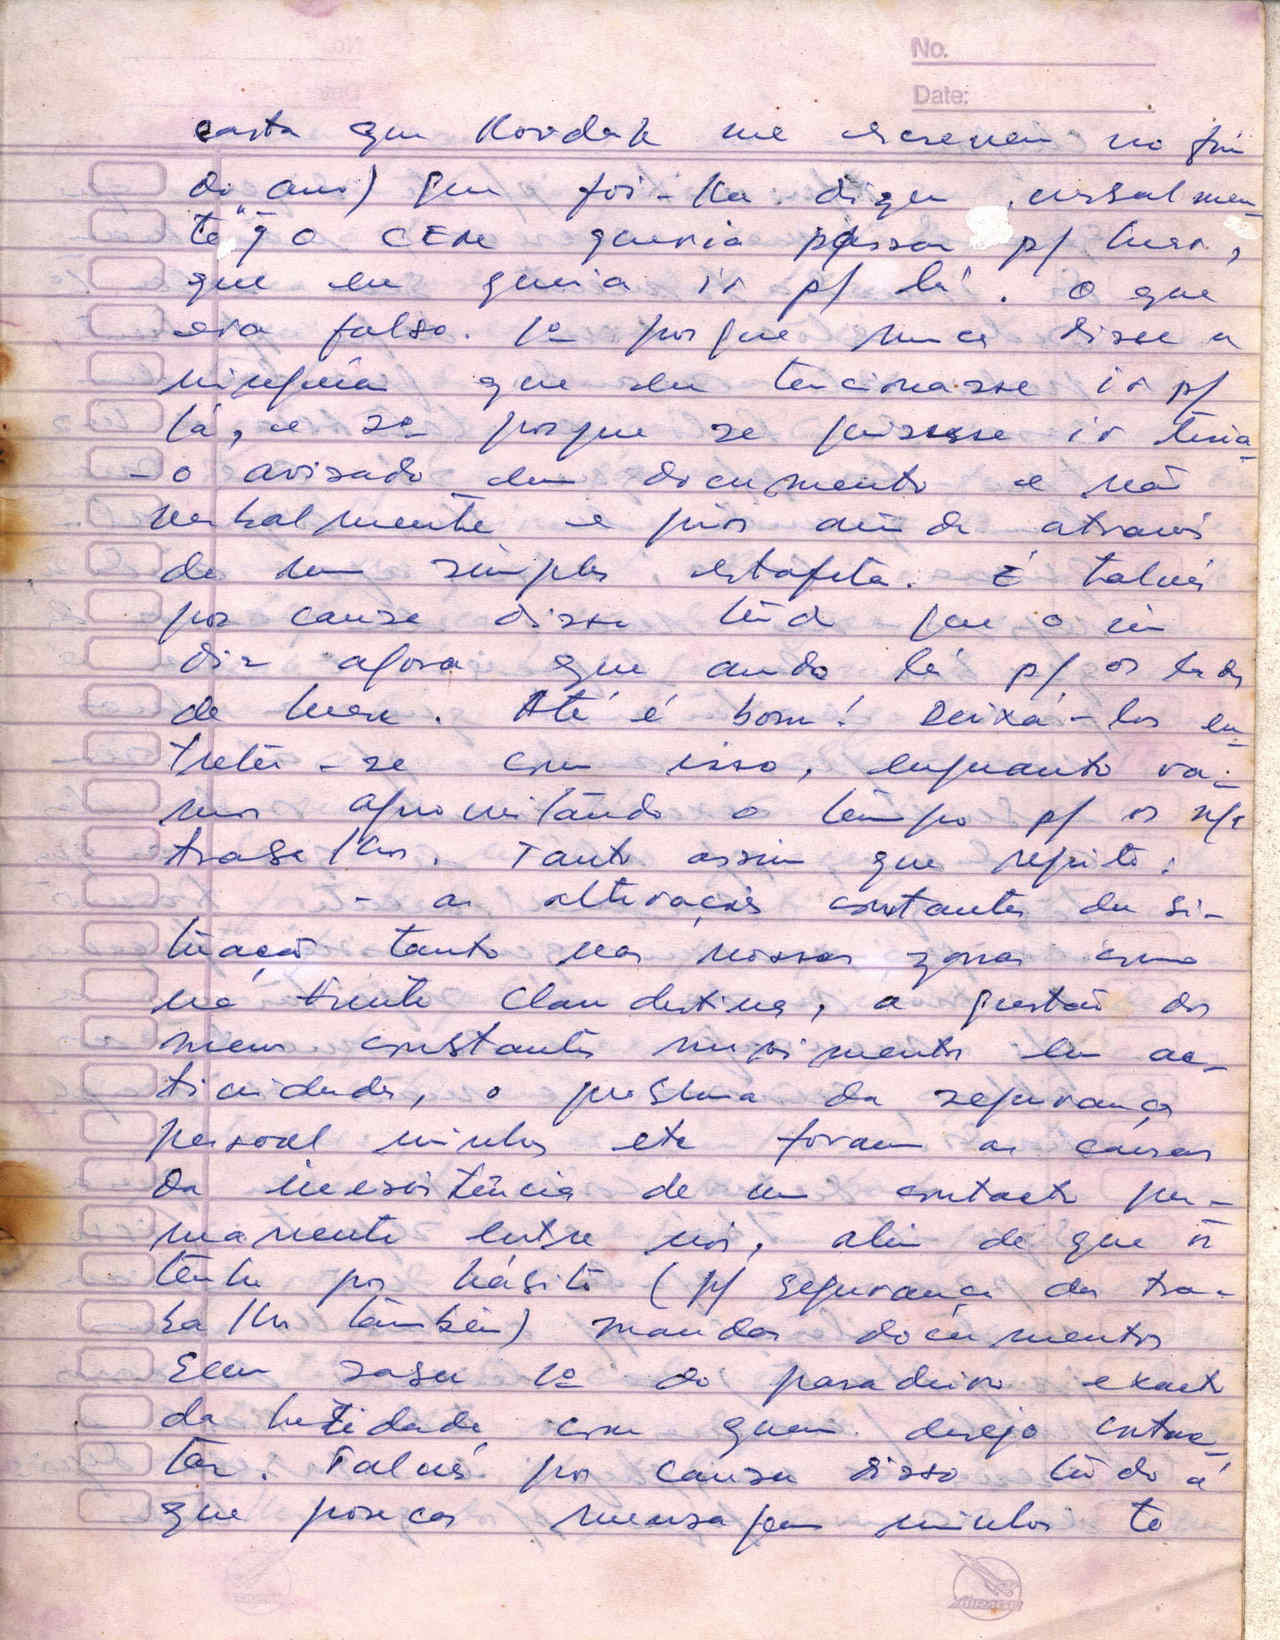 No.
Date:
carta que Kovdak me escreveu no fim
do ano) que foi-lhe dizer "verbalmen-
te" q̃ o CEM queria passar p/ Mex.,
que eu queria ir p/ lá. O que
era falso. 1º porque nunca disse a
ninguém que eu tencionasse ir p/
lá, e 2º porque se quisesse ir teria-
-o avisado em documento e não
verbalmente e pior ainda através
de um simples estafeta. É talvés
por causa disso tudo que o in
diz agora que ando lá p/ os lados
de Mex. Até é bom! Deixá-los en-
treter-se com isso, enquanto va-
mos aproveitando o tempo p/ os n/
trabalhos. Tanto assim que repito:
- as alterações constantes da si-
tuação tanto nas nossas zonas como
na Frente Clandestina, a questão dos
meus constantes movimentos em ac-
tividades, o problema da segurança
pessoal minha etc foram as causas
da inexistência de um contacto per-
manente entre nós, além de que ñ
tenho por hábito (p/ segurança do tra-
balho também) mandar documentos
sem saber 1º do paradeiro exacto
da entidade com quem desejo contac-
tar. Talvés por causa disso tudo é
que poucas mensagens minhas te
MIRAGE